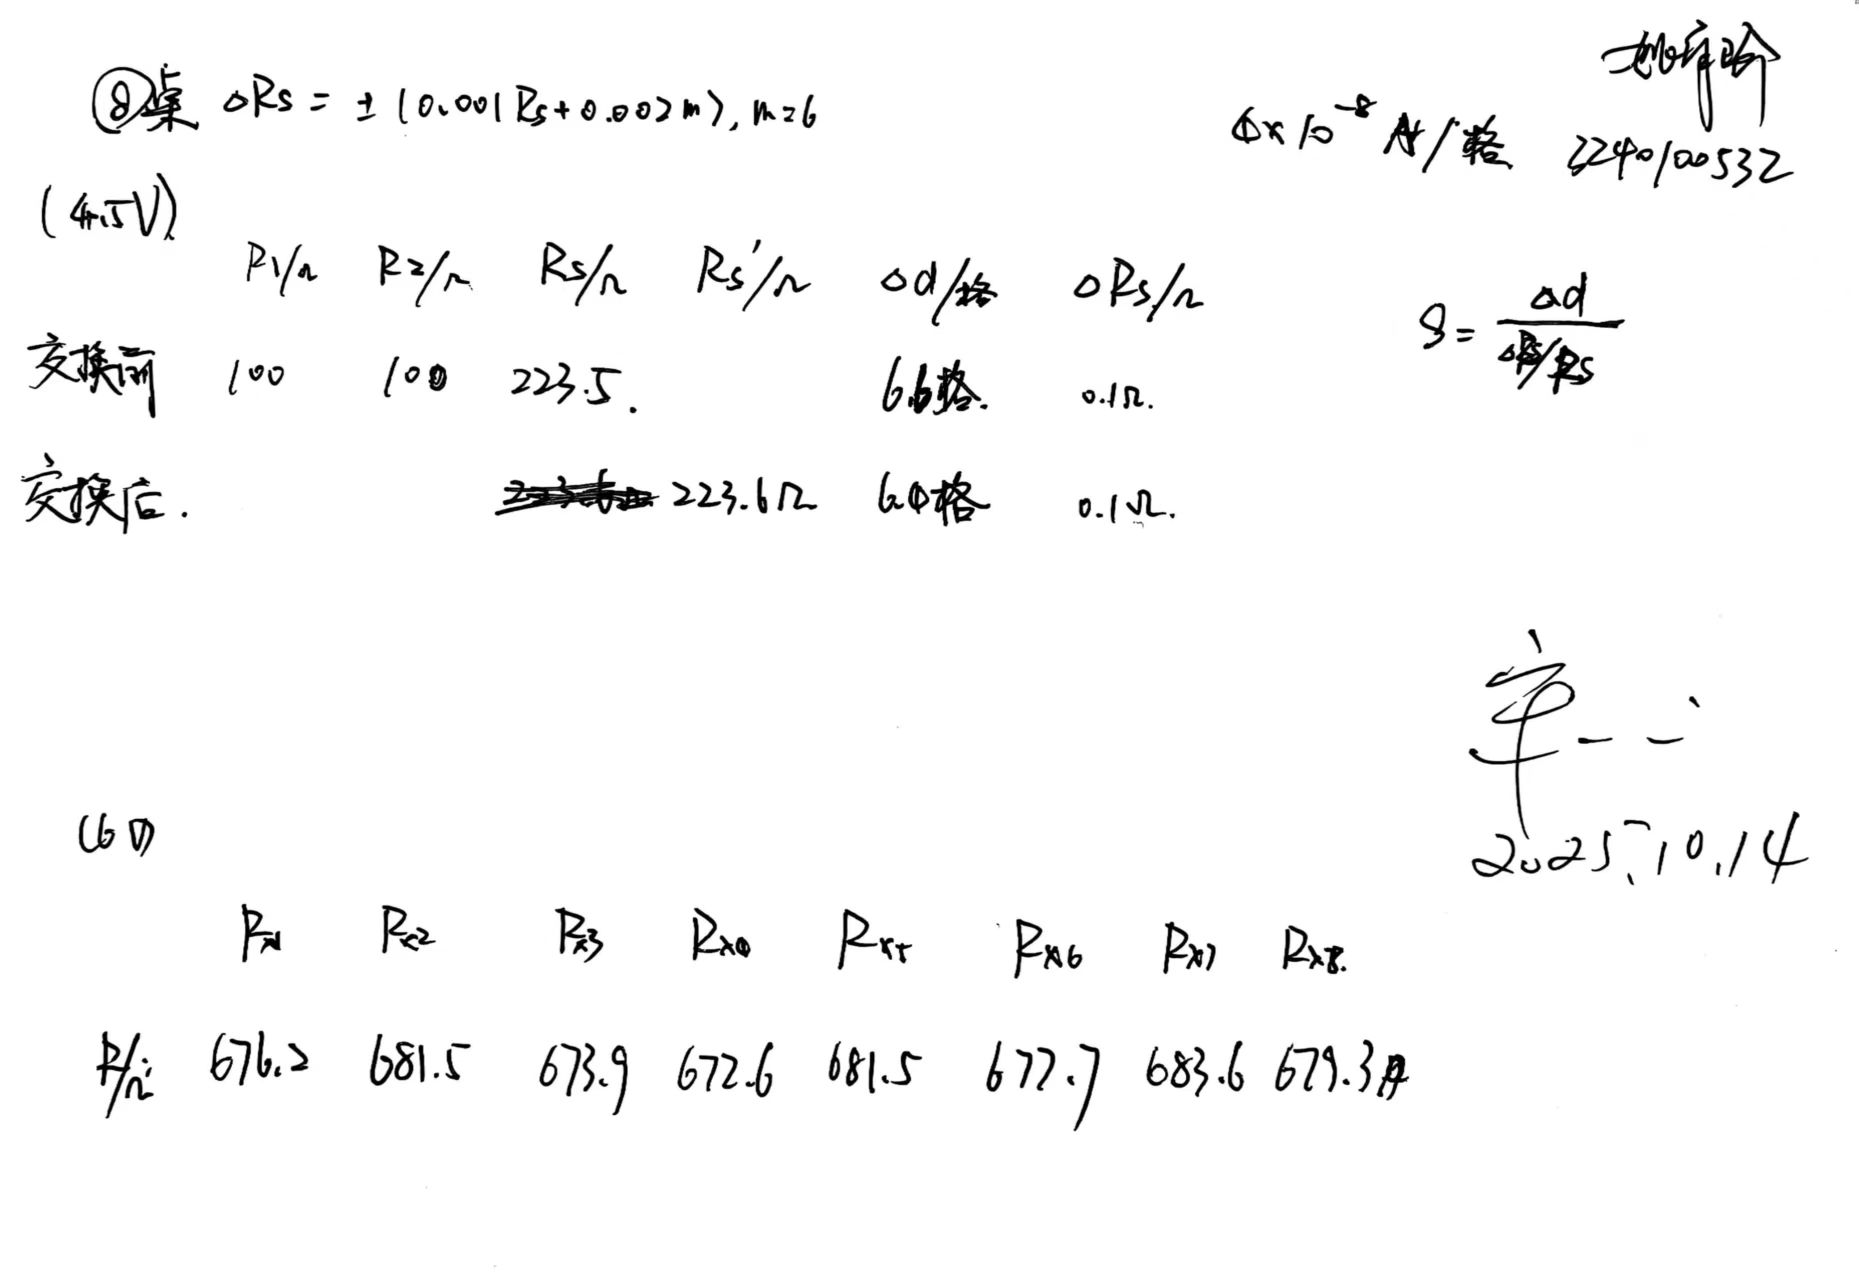 ⑧桌 ΔRs = ±(0.001Rs+0.002m), m=6
4×10⁻⁸ A/格 2240100532
(4.5V)
R1/Ω R2/Ω Rs/Ω Rs'/Ω Δd/格 ΔRs/Ω
S = Δd / ΔRs/Rs
交换前 100 100 223.5. 6.6格. 0.1Ω.
交换后. 223.6Ω 6.4格 0.1Ω.
2025.10.14
(6V)
Rx1 Rx2 Rx3 Rx4 Rx5 Rx6 Rx7 Rx8.
R/Ω 676.2 681.5 673.9 672.6 681.5 677.7 683.6 679.3